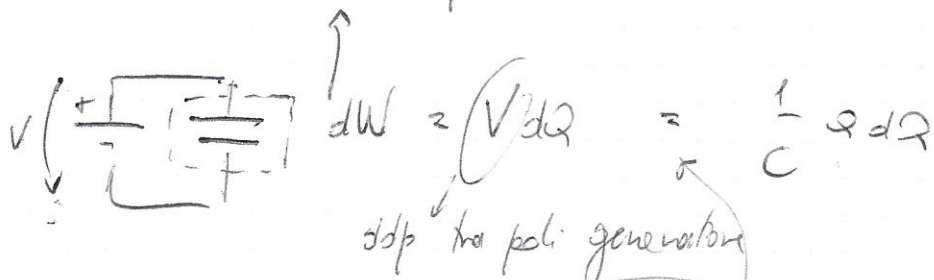 V + - dW = V dQ = 1/C Q dQ
ddp tra poli generatore